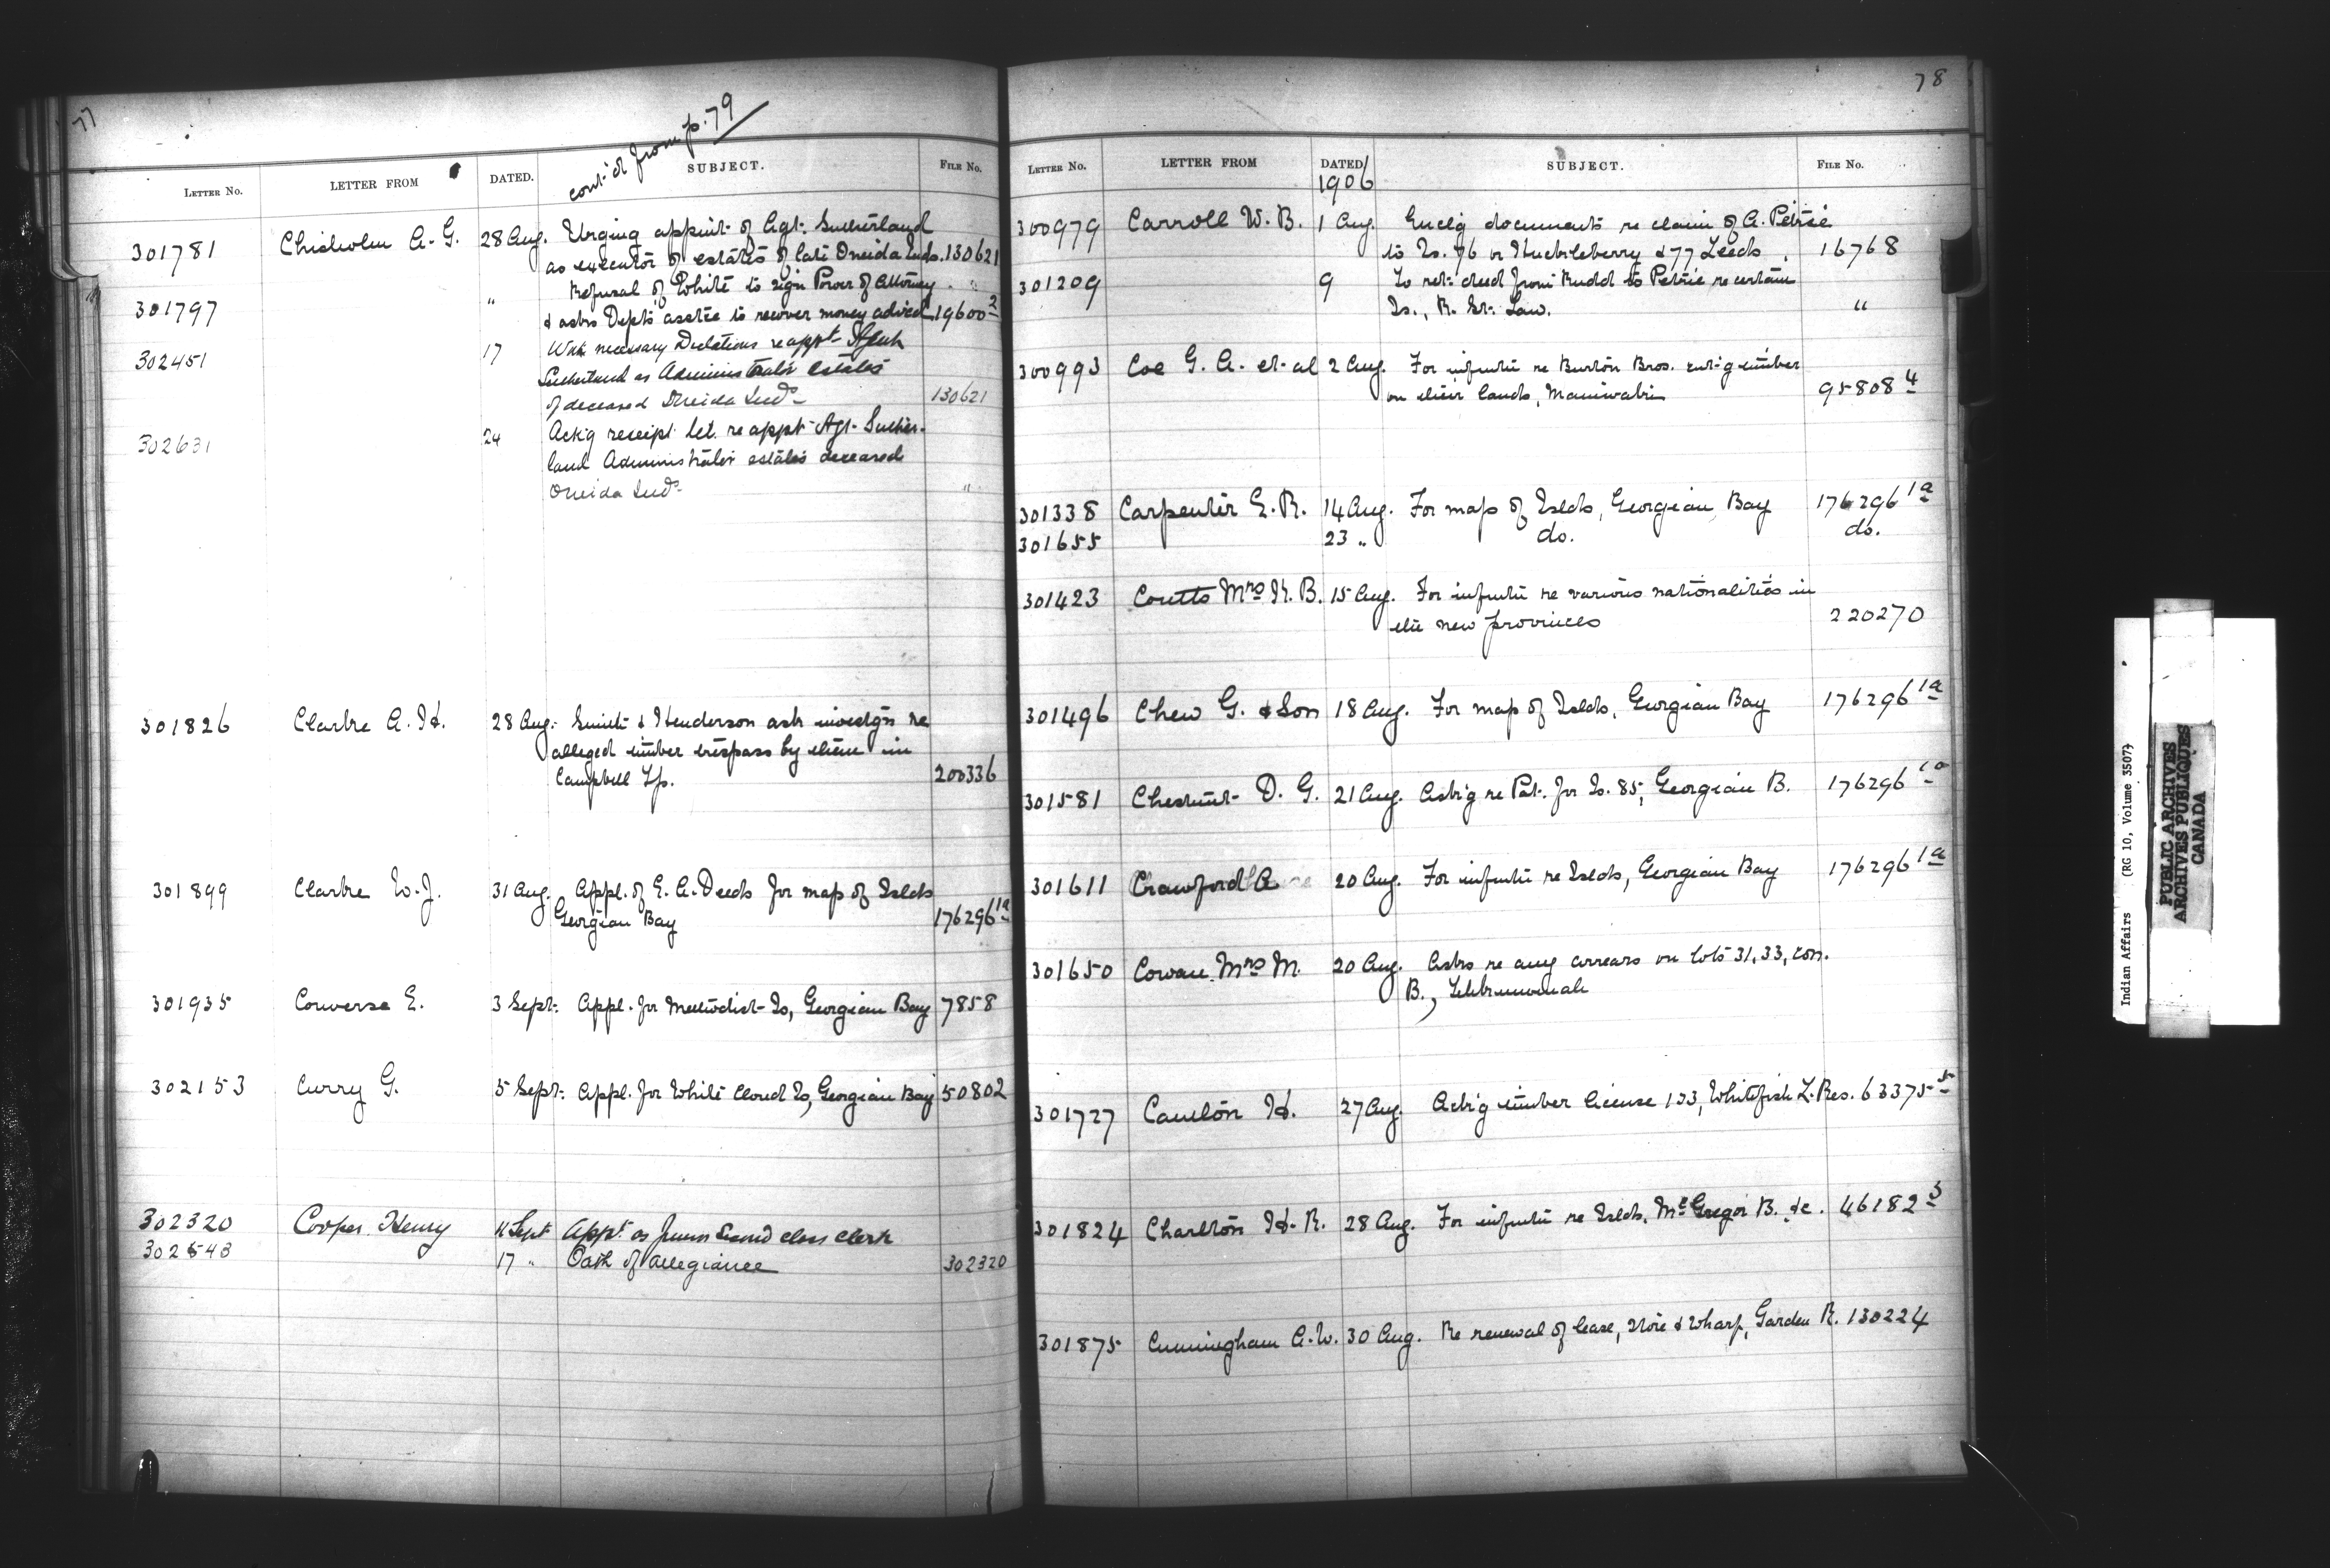 77
cont'd from p. 79
LETTER NO. LETTER FROM DATED. SUBJECT. FILE NO.
301781 Chisholm A. G. 28 Aug. Urging appmt. of Agt. Sutherland
as executor of estates of late Oneida Inds. 130621
301797 " Refusal of White to sign Power of Attorney
& asks Dept's assce to recover money advced 19600-2
302451 17 With necessary Declations re appt Agent
Sutherland as Administrator estates
of deceased Oneida Inds 130621
302631 24 Ack'g receipt let. re appt Agt. Suther-
land Administrator estates deceased
Oneida Inds "
301826 Clarke A. H. 28 Aug. Smith & Henderson ask investg'n re
alleged timber trespass by them in
Campbell Tp. 200336
301899 Clarke W. J. 31 Aug. Appl. of E. A. Deeds for map of Islds
Georgian Bay 176296 1a
301935 Converse E. 3 Sept. Appl. for Methodist Is, Georgian Bay 7858
302153 Curry G. 5 Sept. Appl. for White Cloud Is, Georgian Bay 50802
302320 Cooper Henry 11 Sept Appt. as Second class clerk
302543 17 " Oath of allegiance 302320
78
LETTER NO. LETTER FROM DATED SUBJECT. FILE NO.
1906
300979 Carroll W. B. 1 Aug. Enclg documents re claim of A. Petrie
to Is. 76 or Huckleberry & 77 Leeds. 16768
301209 9 To ret. deed from Rudd to Petrie re certain
Is., R. St. Law. "
300993 Coe G. A. et al 2 Aug. For infmtn re Burton Bros. cut'g timber
on their lands, Maniwaki 95808 4
301338 Carpenter E. R. 14 Aug. For map of Islds, Georgian Bay 176296 1a
301655 23 " do. do.
301423 Coutts Mrs H. B. 15 Aug. For infmtn re various nationalities in
the new provinces 220270
301496 Chew G. & Son 18 Aug. For map of Islds, Georgian Bay 176296 1a
301581 Chestnut D. G. 21 Aug. Ask'g re Pat. for Is. 85, Georgian B. 176296 1a
301611 Crawford A 20 Aug. For infmtn re Islds, Georgian Bay 176296 1a
301650 Cowan Mrs M. 20 Aug. Asks re any arrears on lots 31, 33, con.
B., Tehkummah
301727 Caulton H. 27 Aug. Ask'g timber license 133, Whitefish L. Res. 63375-5
301824 Charlton H. R. 28 Aug. For infmtn re Islds, McGregor B. &c. 46182 5
301875 Cunningham A. W. 30 Aug. Re renewal of lease, store & wharf, Garden R. 130224
Indian Affairs (RG 10, Volume 3507)
PUBLIC ARCHIVES
ARCHIVES PUBLIQUES
CANADA